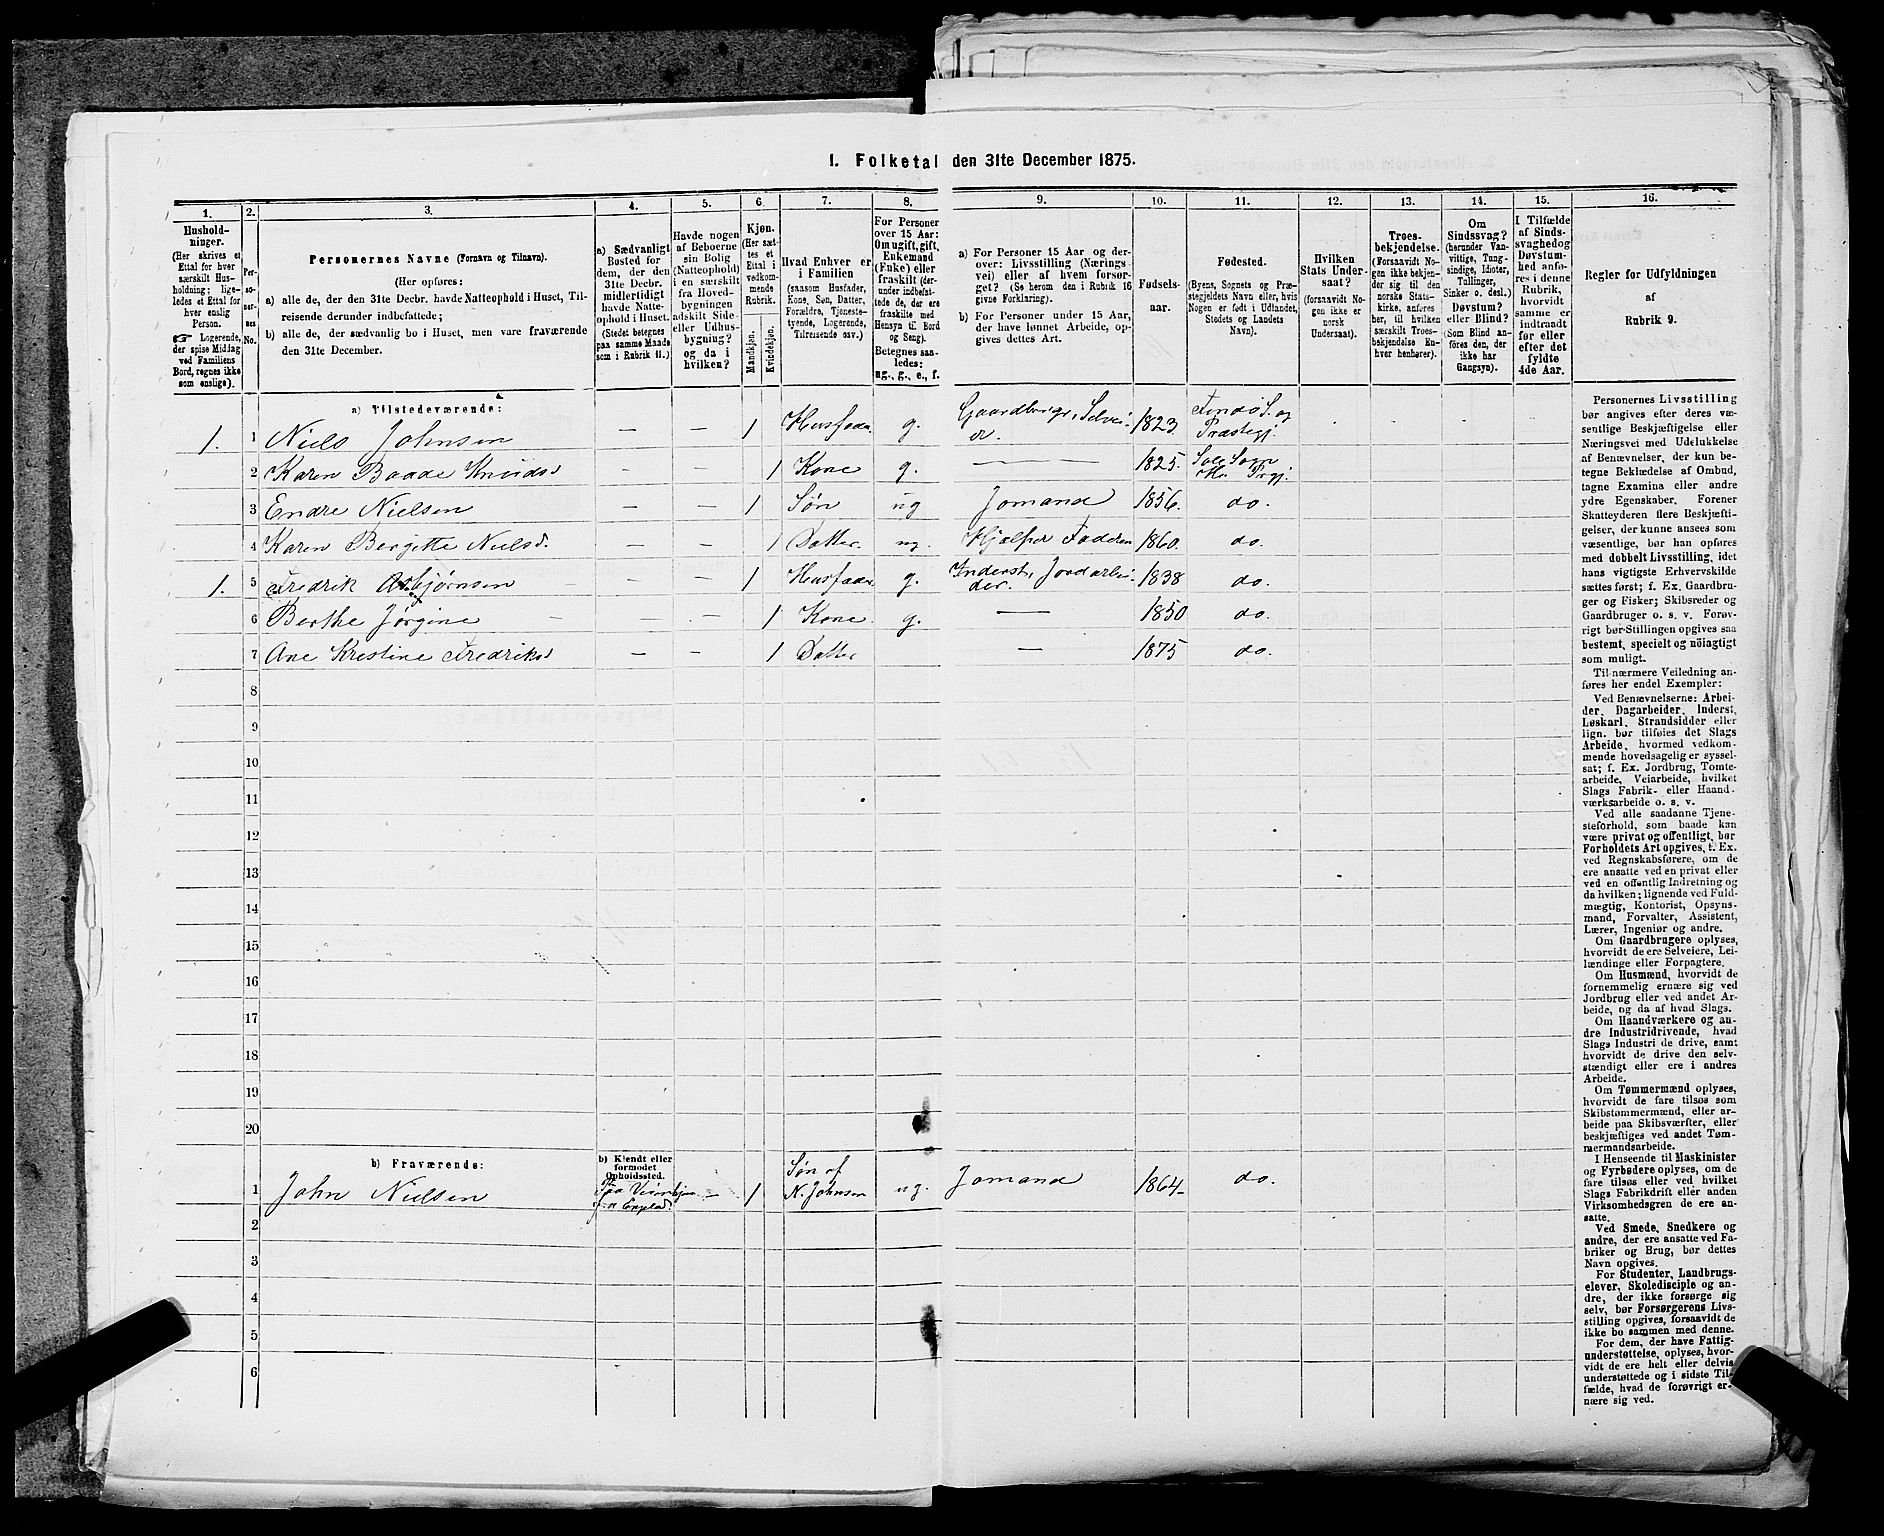 1. Folketal den 31te December 1875.
1. 2. 3. 4. 5. 6. 7. 8. 9. 10. 11. 12. 13. 14. 15. 16.
Hushold-
ninger.
(Her skrives et
Ettal for hver
særskilt Hus-
holdning; lige-
ledes et Ettal for
hver enslig
Person.
☞ Logerende,
der spise Middag
ved Familiens
Bord, regnes ikke
som enslige).
Per-
so-
ner-
nes
No.
Personernes Navne (Fornavn og Tilnavn).
(Her opføres:
a) alle de, der den 31te Decbr. havde Natteophold i Huset, Til-
reisende derunder indbefattede;
b) alle de, der sædvanlig bo i Huset, men vare fraværende
den 31te December.
a) Sædvanligt
Bosted for
dem, der den
31te Decbr.
midlertidigt
havde Natte-
ophold i Huset.
(Stedet betegnes
paa samme Maade
som i Rubrik 11.)
Havde nogen
af Beboerne
sin Bolig
(Natteophold)
i en særskilt
fra Hoved-
bygningen
adskilt Side-
eller Udhus-
bygning?
og da i
hvilken?
Kjøn.
(Her sæt-
tes et
Ettal i
vedkom-
mende
Rubrik.
Mandkjøn.
Kvindekjøn.
Hvad Enhver er
i Familien
(saasom Husfader,
Kone, Søn, Datter,
Forældre, Tjeneste-
tyende, Logerende,
Tilreisende osv.)
For Personer
over 15 Aar:
Om ugift, gift,
Enkemand
(Enke) eller
fraskilt (der-
under indbefat-
tede de, der ere
fraskilte med
Hensyn til Bord
og Seng).
Betegnes saa-
ledes:
ug., g., e., f.
a) For Personer 15 Aar og der-
over: Livsstilling (Nærings-
vei) eller af hvem forsør-
get? (Se herom den i Rubrik 16
givne Forklaring).
b) For Personer under 15 Aar,
der have lønnet Arbeide, op-
gives dettes Art.
Fødsels-
aar.
Fødested.
(Byens, Sognets og Præ-
stegjeldets Navn eller, hvis
Nogen er født i Udlandet,
Stedets og Landets
Navn).
Hvilken
Stats Under-
saat?
(forsaavidt No-
gen ikke er
norsk
Undersaat).
Troes-
bekjendelse.
(Forsaavidt No-
gen ikke bekjen-
der sig til den
norske Stats-
kirke, anføres
her, til hvilken
særskilt Troes-
bekjendelse En-
hver henhører).
Om
Sindssvag?
(herunder Van-
vittige, Tung-
sindige, Idioter,
Tullinger,
Sinker o. desl.)
Døvstum?
eller Blind?
(Som Blind an-
føres den, der
ikke har
Gangsyn).
I Tilfælde
af Sinds-
svaghed og
Døvstum-
hed anfø-
res i denne
Rubrik,
hvorvidt
samme er
indtraadt
før eller
efter det
fyldte
4de Aar.
Regler for Udfyldningen
af
Rubrik 9.
a) Tilstedeværende:
1. 1 Niels Johnsen — — 1 Husfader g. Gaardbrugr, Selvei-er 1823. Findø S. og Præstegj.
2 Karen Baade Knudsd — — 1 Kone g. — — 1825. Sogn Prgj.
3 Endre Nielsen — — 1 Søn ug Jomand 1856. do.
4 Karen Bergitte Nielsd. — — 1 Datter. ug. Hjælper Faderen 1860. do.
1. 5 Fredrik Asbjørnsen — — 1 Husfader g. Inderst, Jordarbei-der. 1838 do.
6 Berthe Jørgine — — — 1 Kone. g. — 1850 do.
7 Ane Krestine Fredriksd — — 1 Datter — 1875 do.
8
9
10
11
12
13
14
15
16
17
18
19
20
b) Fraværende:
b) Kjendt eller
formodet
Opholdssted.
1 John Nielsen Paa — 1 Søn af N. Johnsen ug. Jomand 1864 do.
2
3
4
5
6
Personernes Livsstilling
bør angives efter deres væ-
sentlige Beskjæftigelse eller
Næringsvei med Udelukkelse
af Benævnelser, der kun be-
tegne Beklædelse af Ombud,
tagne Examina eller andre
ydre Egenskaber. Forener
Skatteyderen flere Beskjæfti-
gelser, der kunne ansees som
væsentlige, bør han opføres
med dobbelt Livsstilling, idet
hans vigtigste Erhvervskilde
sættes først; f. Ex. Gaardbru-
ger og Fisker; Skibsreder og
Gaardbruger o. s. v. Forøv-
rigt bør Stillingen opgives saa
bestemt, specielt og nøiagtigt
som muligt.
Til nærmere Veiledning an-
føres her endel Exempler:
Ved Benævnelserne: Arbei-
der, Dagarbeider, Inderst,
Løskarl, Strandsidder eller
lign. bør tilføies det Slags
Arbeide, hvormed vedkom-
mende hovedsagelig er syssel-
sat; f. Ex. Jordbrug, Tomte-
arbeide, Veiarbeide, hvilket
Slags Fabrik- eller Haand-
værksarbeide o. s. v.
Ved alle saadanne Tjene-
steforhold, som baade kan
være privat og offentligt, bør
Forholdets Art opgives, f. Ex.
ved Regnskabsførere, om de
ere ansatte ved en privat eller
ved en offentlig Indretning og
da hvilken; lignende ved Fuld-
mægtig, Kontorist, Opsyns-
mand, Forvalter, Assistent,
Lærer, Ingeniør og andre.
Om Gaardbrugere oplyses,
hvorvidt de ere Selveiere, Lei-
lændinge eller Forpagtere.
Om Husmænd, hvorvidt de
fornemmelig ernære sig ved
Jordbrug eller ved andet Ar-
beide, og da af hvad Slags.
Om Haandværkere og an-
dre Industridrivende, hvad
Slags Industri de drive, samt
hvorvidt de drive den selv-
stændigt eller ere i andres
Arbeide.
Om Tømmermænd oplyses,
hvorvidt de fare tilsøs som
Skibstømmermænd, eller ar-
beide paa Skibsværfter, eller
beskjæftiges ved andet Tøm-
mermandsarbeide.
I Henseende til Maskinister
og Fyrbødere oplyses, om de
fare tilsøs eller ved hvilket
Slags Fabrikdrift eller anden
Virksomhedsgren de ere an-
satte.
Ved Smede, Snedkere og
andre, der ere ansatte ved Fa-
briker og Brug, bør dettes
Navn opgives.
For Studenter, Landbrugs-
elever, Skoledisciple og an-
dre, der ikke forsørge sig
selv, bør Forsørgerens Livs-
stilling opgives, forsaavidt de
ikke bo sammen med denne.
For dem, der have Fattig-
understøttelse, oplyses, hvor-
vidt de ere helt eller delvis
understøttede og i sidste Til-
fælde, hvad de forøvrigt er-
nære sig ved.